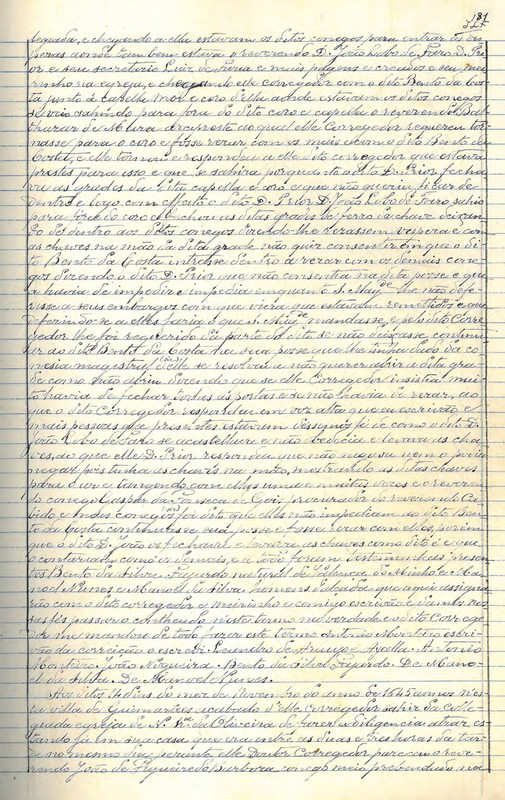 181
legiada, e chegando a ella estavam os ditos conegos para entrar ás ves-
peras aonde tambem estava o reverendo D. João Lobo de Faro D. Pri-
or e seu secretario Luiz de Faria e mais pagens e creados e seu mei-
rinho na egreja, e chegando elle corregedor com o dito Bento da Cos-
ta junto á capella mór e coro d'ella aonde estavam os ditos conegos
se veio sahindo para fóra do dito coro e capella o reverendo Bal-
thazar de Meira arcipreste ao qual elle Corregedor requereu tor-
nasse para o coro e fosse rezar com os mais e com o dito Bento da
Costa, e elle tornou e respondeu a elle dito corregedor que estava
prestes para isso e que se sahira porquanto o dito D. Prior fecha-
va as grades da dita capella e coro e que não queria ficar de
dentro e logo com effeito o dito D. Prior D. João Lobo de Faro sahio
para fóra do coro e fechou as ditas grades de ferro da chave deixan-
do de dentro aos ditos conegos dizendo-lhe rezassem vespera e com
as chaves na mão da dita grade não quiz consentir em que o di-
to Bento da Costa entrasse dentro a rezar com os demais cone-
gos dizendo o dito D. Prior que não consentia na dita posse e que
a havia de impedir e impedia emquanto S. Mag.de lhe não defe-
risse a seus embargos com que viera que estavam remettidos e que
deferindo-se a elles faria o que S. Mag.de mandasse, e pelo dito Corre-
gedor lhe foi requerido da parte do dito se não deixasse continu-
ar ao dito Bento da Costa na sua posse que lhe tinha dado da co-
nesia magistral d'elle se reservar a não querer abrir a dita gra-
de como não abriu dizendo que se elle Corregedor insistia mui-
to havia de fechar todas as portas e se não havia de rezar, ao
que o dito Corregedor respondeu em voz alta que eu escrivão e
mais pessoas que presentes estavam dessem fé de como o dito D.
João Lobo de Faro se acastellava e não obedecia e levava as cha-
ves, ao que elle D. Prior respondeu que não negava nem o podia
negar pois tinha as chaves na mão, mostrando as ditas chaves
para o ar e tangendo com ellas uma e muitas vezes e o reveren-
do conego Gaspar da Fonseca de Goes procurador do reverendo Ca-
bido e mais conegos foi dito que elles não impediam ao dito Ben-
to da Costa continuasse sua posse e fosse rezar com elles, porém
que o dito D. João os fechava e levava as chaves como dito é e que
o contariam como os demais, e a tudo foram testemunhas presen-
tes Bento da Silva Fajardo natural de Valença do Minho e Ma-
noel Nunes e Manoel da Silva homens que aqui assigna-
rão com o dito corregedor e meirinho e comigo escrivão e damos nos-
sas fés passar o contheudo n'este termo na verdade e o dito Correge-
dor me mandou de tudo fazer este termo Antonio Monteiro escri-
vão da correição o escrevi. Leandro de Araujo e Ayalla. Antonio
Monteiro. João Nogueira. Bento da Silva Fajardo. De Mano-
el da Silva. De Manoel Nunes.
Aos ditos 14 dias do mez de Novembro do anno de 1645 annos n'es-
ta villa de Guimarães acabado d'elle corregedor sahir da Colle-
giada egreja de N. Sr.a da Oliveira de fazer a diligencia atraz es-
tando já em sua casa que era entre as duas e tres horas da tar-
de no mesmo dia perante elle Doutor Corregedor pareceu o reve-
rendo João de Figueiredo Barbosa conego meio prebendado na